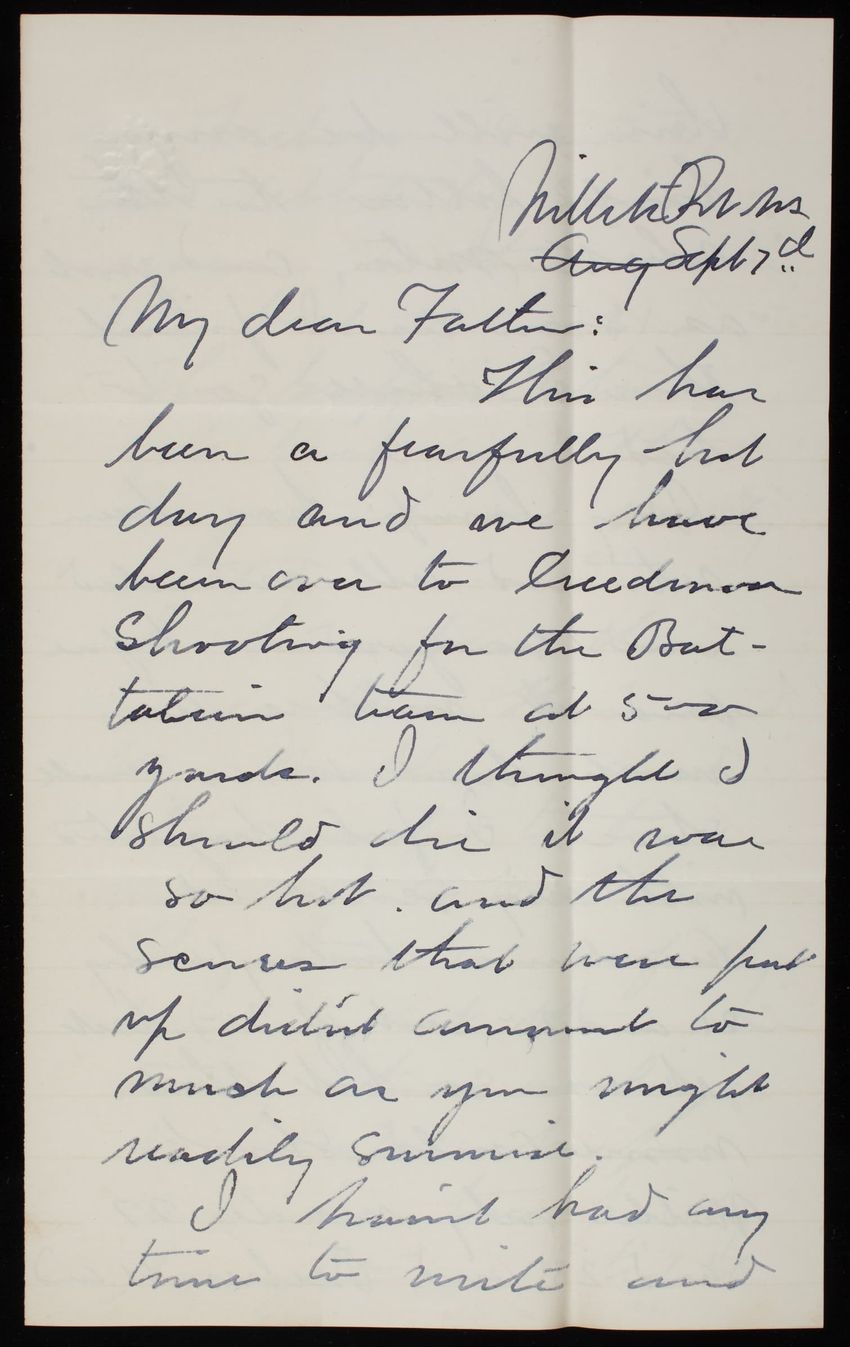 Willets Pt
Aug Sept 7 d
My dear Father:
This has
been a fearfully hot
day and we have
been over to Creedmoor
Shooting for the Bat-
talion team at 500
yards. I thought I
should die it was
so hot. and the
scores that were put
up didn't amount to
much as you might
readily surmise.
I hain't had any
time to write and